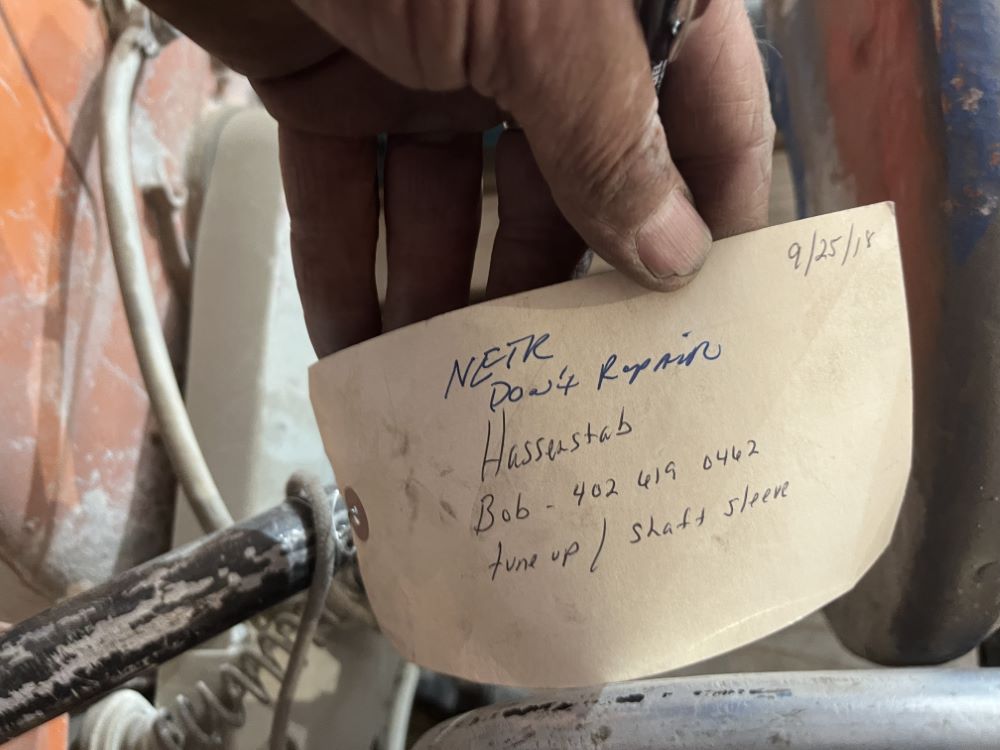 9/25/18
NETR
Don't Repair
Hassenstab
Bob - 402 619 0462
tune up / shaft sleeve